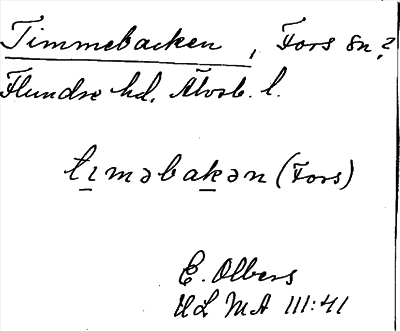 Timmebacken, Fors sn?
Flundre hd, Älvsb. l.
tıməbakən (Fors)
E. Olbers
ULMA 111:41